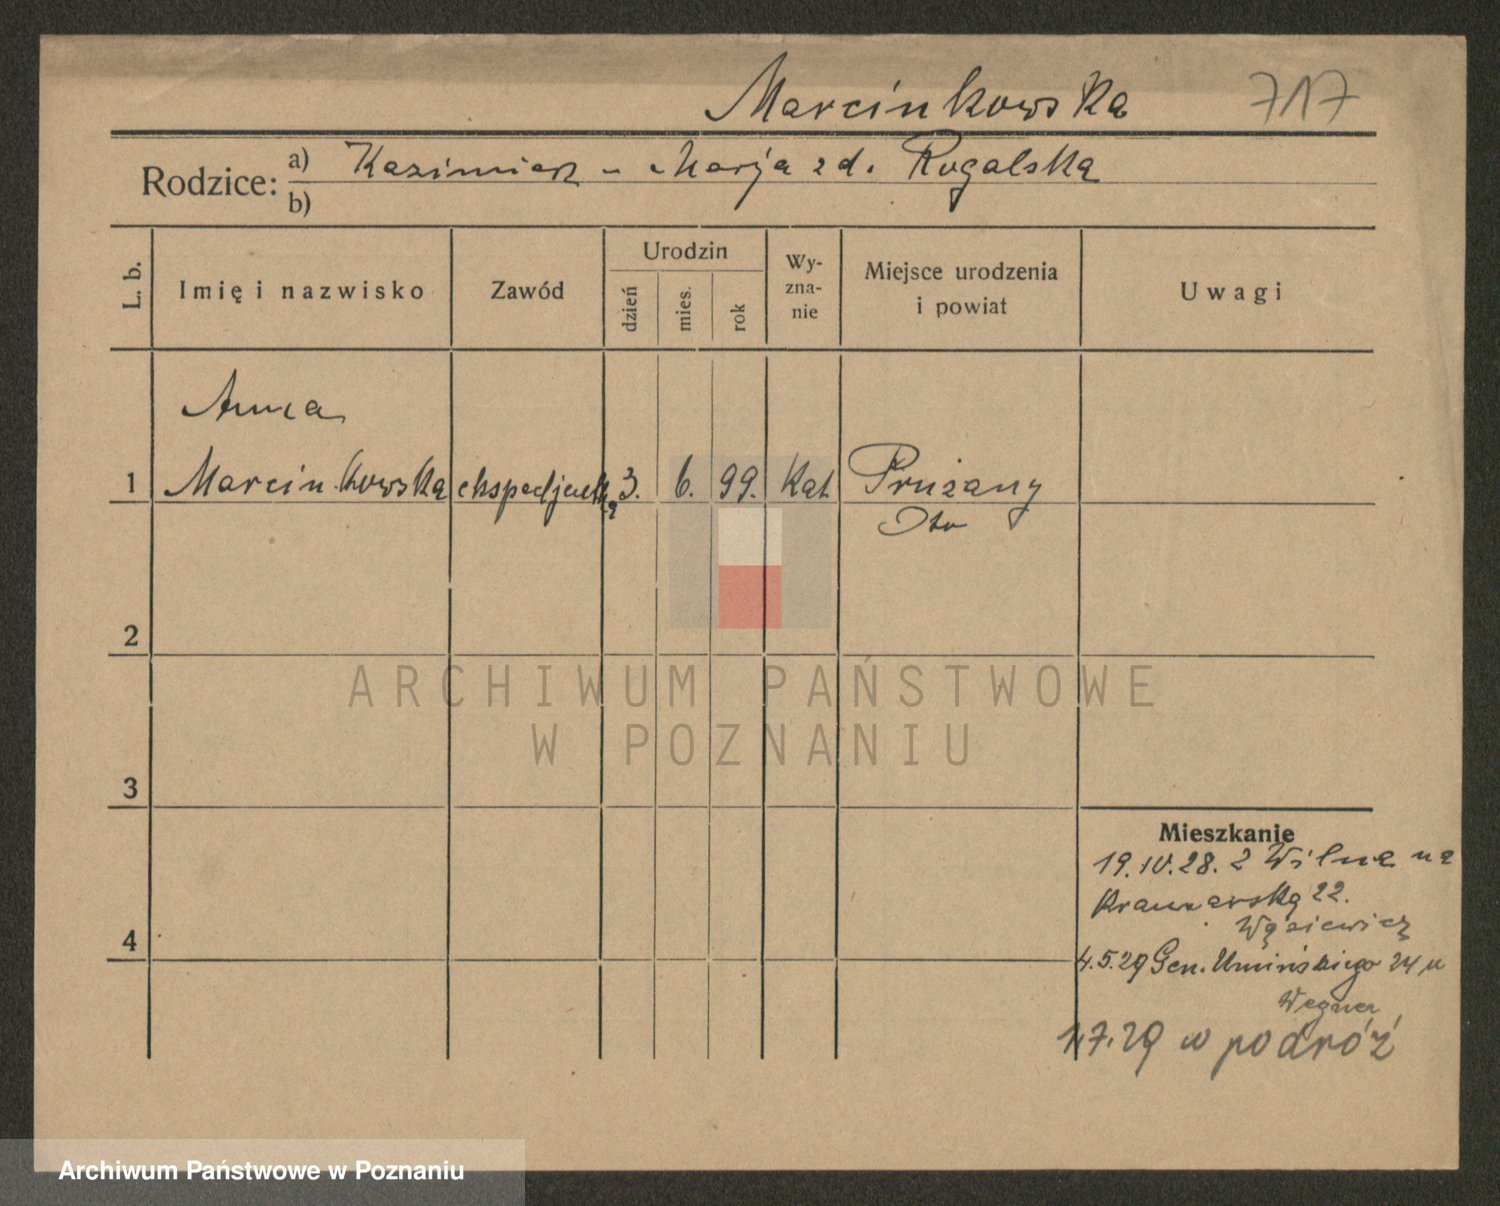 Marcinkowska 717
Rodzice: a) Kazimierz - Marja z d. Rogalska
b)
L. b. Imię i nazwisko Zawód Urodzin dzień mies. rok Wy-zna-nie Miejsce urodzenia i powiat Uwagi
Anna
1 Marcinkowska ekspedjentka 3. 6. 99. Kat Prużany
2
3
4
Mieszkanie
19.IV.28. z Wilna na
22.
4.5.29 Gen. Umińskiego 24 u
Wegner
1.7.29 w podróż
ARCHIWUM PAŃSTWOWE
W POZNANIU
Archiwum Państwowe w Poznaniu